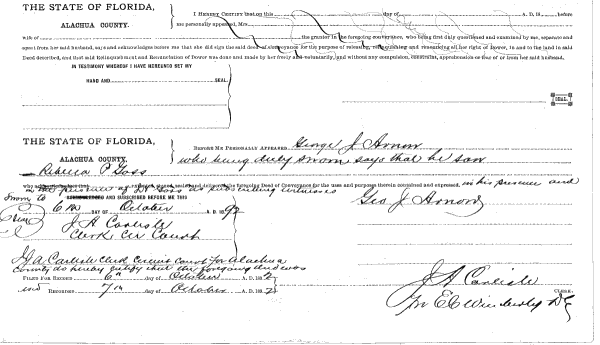 THE STATE OF FLORIDA,
ALACHUA COUNTY.
I HEREBY CERTIFY that on this day of A. D. 18 , before
me personally appeared, Mrs.
wife of the grantor in the foregoing conveyance, who being first duly questioned and examined by me, separate and
apart from her said husband, says and acknowledges before me that she did sign the said deed of conveyance for the purpose of releasing, relinquishing and renouncing all her right of dower, in and to the land in said
Deed described, and that said Relinquishment and Renunciation of Dower was done and made by her freely and voluntarily, and without any compulsion, constraint, apprehension or fear of or from her said husband.
IN TESTIMONY WHEREOF I HAVE HEREUNTO SET MY
HAND AND SEAL
SEAL.
THE STATE OF FLORIDA,
ALACHUA COUNTY.
BEFORE ME PERSONALLY APPEARED George J Arnow
who being duly sworn says that he saw
Rebecca P Goss
in the presence of as subscribing witnesses
executed, signed, sealed and delivered the foregoing Deed of Conveyance for the uses and purposes therein contained and expressed, in his presence and
Sworn to AND SUBSCRIBED BEFORE ME THIS
6th DAY OF October A. D. 1892
Geo J Arnow
J A Carlisle
Clerk Cir Court
I J A Carlisle Clerk Circuit Court for Alachua
County do hereby certify that the foregoing deed was
FILED FOR RECORD 6th day of October A. D. 1892
and RECORDED 7th day of October A. D. 1892
J A Carlisle CLERK.
Per E C Wimberly D C